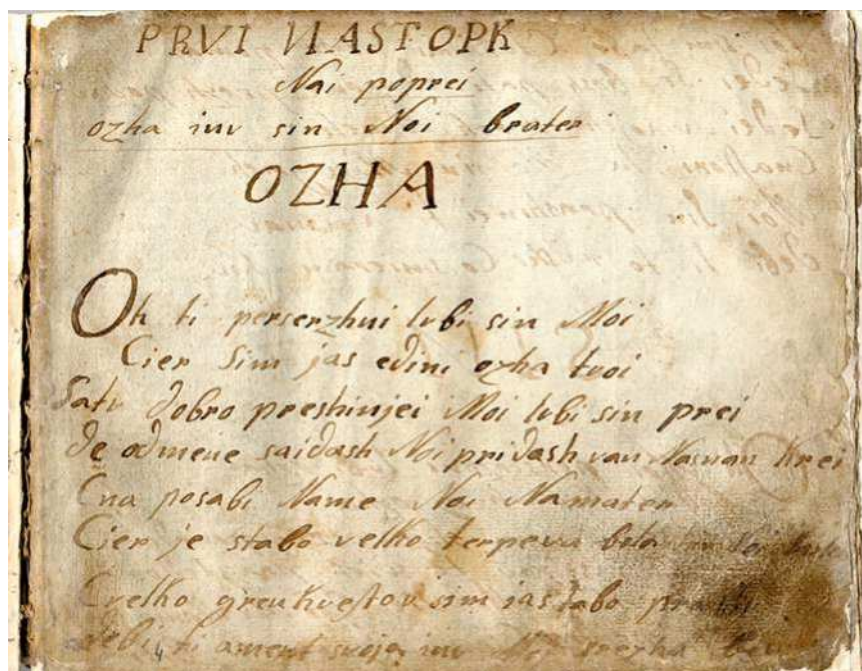 PRVI NASTOPK
Nai poprei
ozha inv sin Noi brater
OZHA
Oh ti perserzhni lvbi sin Moi
Cier Sim jas edini ozha tvoi
Satv dobro preshinjei Moi lvbi sin prei
de odmene saidash Noi pridash van Nasnan Krei
Cna posabi Name Noi Namater
Cier je stabo velko terpeva bila
Cvelko greu kveftov sim jas tabo
debi ti ament svoje inv Noi